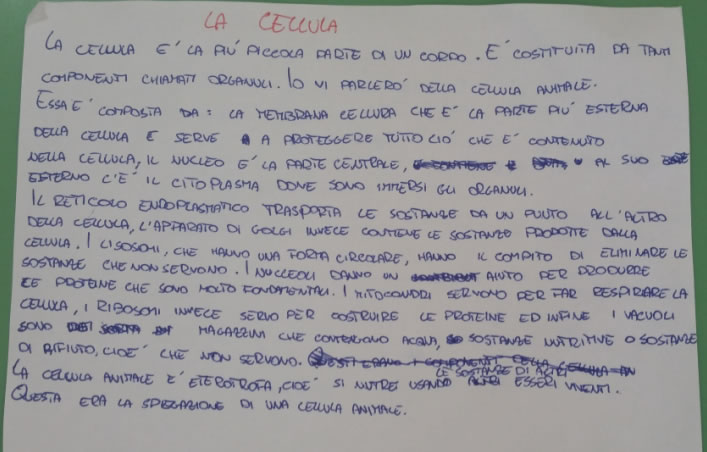 LA CELLULA
LA CELLULA E' LA PIU' PICCOLA PARTE DI UN CORPO. E' COSTITUITA DA TANTI
COMPONENTI CHIAMATI ORGANULI. IO VI PARLERO' DELLA CELLULA ANIMALE.
ESSA E' COMPOSTA DA: LA MEMBRANA CELLURA CHE E' LA PARTE PIU' ESTERNA
DELLA CELLULA E SERVE A PROTEGGERE TUTTO CIO' CHE E' CONTENUTO
NELLA CELLULA, IL NUCLEO E' LA PARTE CENTRALE, AL SUO
ESTERNO C'E' IL CITOPLASMA DOVE SONO IMMERSI GLI ORGANULI.
IL RETICOLO ENDOPLASMATICO TRASPORTA LE SOSTANZE DA UN PUNTO ALL'ALTRO
DELLA CELLULA, L'APPARATO DI GOLGI INVECE CONTIENE LE SOSTANZE PRODOTTE DALLA
CELLULA. I LISOSOMI, CHE HANNO UNA FORMA CIRCOLARE, HANNO IL COMPITO DI ELIMINARE LE
SOSTANZE CHE NON SERVONO. I NUCLEOLI DANNO UN AIUTO PER PRODURRE
LE PROTEINE CHE SONO MOLTO FONDAMENTALI. I MITOCONDRI SERVONO PER FAR RESPIRARE LA
CELLULA, I RIBOSOMI INVECE SERVO PER COSTRUIRE LE PROTEINE ED INFINE I VACUOLI
SONO MAGAZZINI CHE CONTENGONO ACQUA, SOSTANZE NUTRITIVE O SOSTANZE
DI RIFIUTO, CIOE' CHE NON SERVONO. QUESTI ERANO I COMPONENTI DELLA CELLULA AN
LA CELLULA ANIMALE E' ETEROTROFA, CIOE' SI NUTRE USANDO LE SOSTANZE DI ALTRI ESSERI VIVENTI.
QUESTA ERA LA SPIEGAZIONE DI UNA CELLULA ANIMALE.